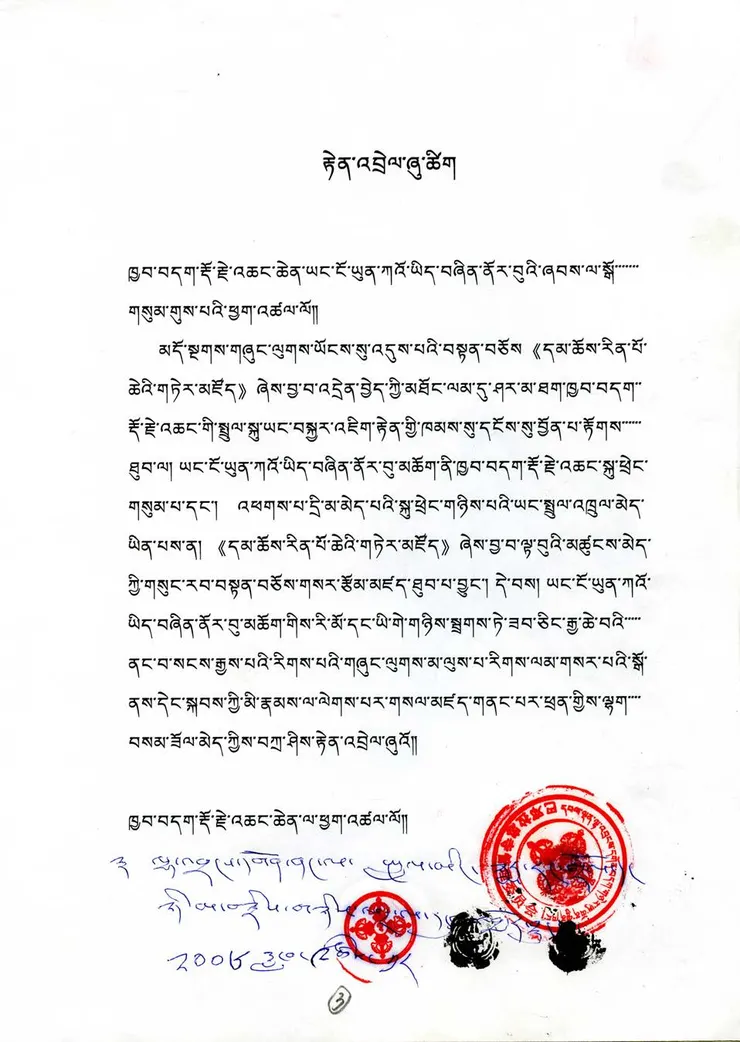 རྟེན་འབྲེལ་ཞུ་ཚིག
ཁྱབ་བདག་རྡོ་རྗེ་འཆང་ཆེན་ཡང་ངོ་ཡུན་ཀའོ་ཡིད་བཞིན་ནོར་བུའི་ཞབས་ལ་སྒོ་་་་་་་
གསུམ་གུས་པའི་ཕྱག་འཚལ་ལོ།།
མདོ་སྔགས་གཞུང་ལུགས་ཡོངས་སུ་འདུས་པའི་བསྟན་བཅོས《དམ་ཆོས་རིན་པོ་
ཆེའི་གཏེར་མཛོད》ཞེས་བྱ་བ་འདྲེན་བྱེད་ཀྱི་མཐོང་ལམ་དུ་ཤར་མ་ཐག་ཁྱབ་བདག་་
རྡོ་རྗེ་འཆང་གི་སྤྲུལ་སྐུ་ཡང་བསྐྱར་འཇིག་རྟེན་གྱི་ཁམས་སུ་དངོས་སུ་བྱོན་པ་རྟོགས་་་་་་
ཐུབ་ལ། ཡང་ངོ་ཡུན་ཀའོ་ཡིད་བཞིན་ནོར་བུ་མཆོག་ནི་ཁྱབ་བདག་རྡོ་རྗེ་འཆང་སྐུ་ཕྲེང་
གསུམ་པ་དང་། འཕགས་པ་དྲི་མ་མེད་པའི་སྐུ་ཕྲེང་གཉིས་པའི་ཡང་སྤྲུལ་འཁྲུལ་མེད་
ཡིན་པས་ན། 《དམ་ཆོས་རིན་པོ་ཆེའི་གཏེར་མཛོད》ཞེས་བྱ་བ་ལྟ་བུའི་མཚུངས་མེད་
ཀྱི་གསུང་རབ་བསྟན་བཅོས་གསར་རྩོམ་མཛད་ཐུབ་པ་བྱུང་། དེ་བས། ཡང་ངོ་ཡུན་ཀའོ་
ཡིད་བཞིན་ནོར་བུ་མཆོག་གིས་རི་མོ་དང་ཡི་གེ་གཉིས་སྦྲགས་ཏེ་ཟབ་ཅིང་རྒྱ་ཆེ་བའི་་་་་
ནང་པ་སངས་རྒྱས་པའི་རིགས་པའི་གཞུང་ལུགས་མ་ལུས་པ་རིགས་ལམ་གསར་པའི་སྒོ་
ནས་དེང་སྐབས་ཀྱི་མི་རྣམས་ལ་ལེགས་པར་གསལ་མཛད་གནང་བར་ཕྲན་གྱིས་ལྷག་་་་
བསམ་ཟོལ་མེད་ཀྱིས་བཀྲ་ཤིས་རྟེན་འབྲེལ་ཞུའོ།།
ཁྱབ་བདག་རྡོ་རྗེ་འཆང་ཆེན་ལ་ཕྱག་འཚལ་ལོ།།
③